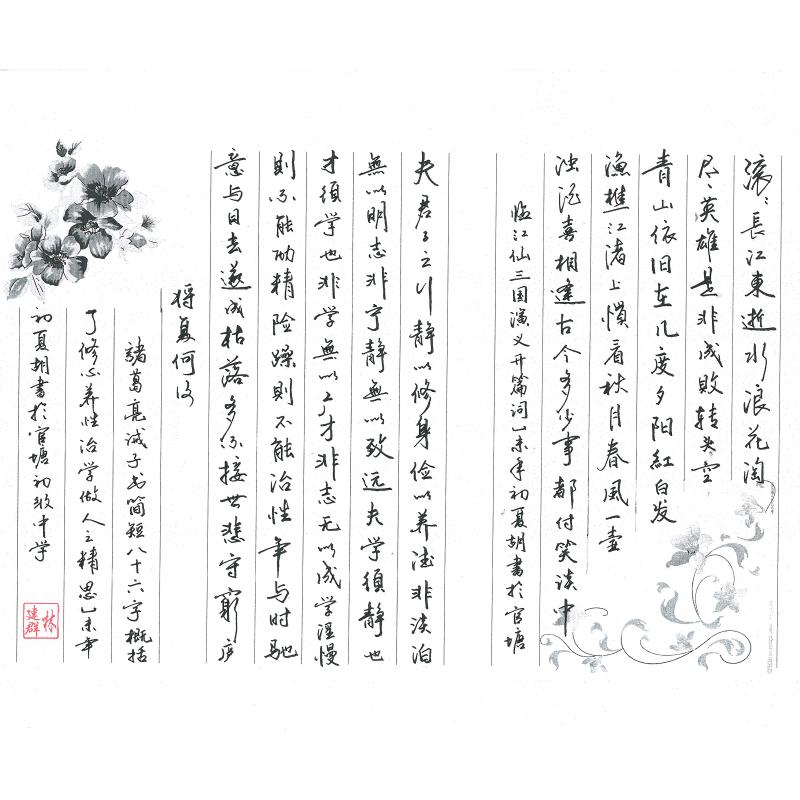 滚、長江東逝水浪花淘
尽、英雄是非成敗转头空
青山依旧在几度夕阳紅白发
漁樵江渚上慣看秋月春風一壶
浊酒喜相逢古今多少事都付笑谈中
临江仙三国演义开篇词乙未年初夏胡書於官塘
夫君子之行静以修身俭以养德非淡泊
無以明志非宁静無以致远夫学須静也
才須学也非学無以广才非志无以成学淫慢
則不能励精险躁則不能冶性年与时驰
意与日去遂成枯落多不接世悲守窮庐
将复何及
諸葛亮诫子书简短八十六字概括
了修心养性治学做人之精思乙未年
初夏胡書於官塘初级中学
林建群